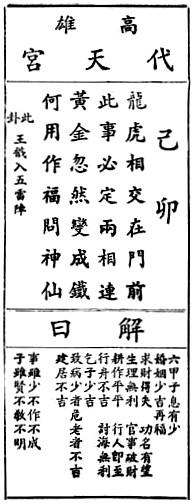 高雄
代天宮
己卯
龍虎相交在門前
此事必定兩相連
黃金忽然變成鐵
何用作福問神仙
此卦
王戩入五雷陣
解曰
六甲子息有少
婚姻少吉再福
求財得失　功名有望
生理無利　官事破財
耕作平平　行人即至
行舟不吉　討海無利
乞子少吉
致病少者危老者不吉
建居不吉
事雖少不作不成
子雖賢不教不明